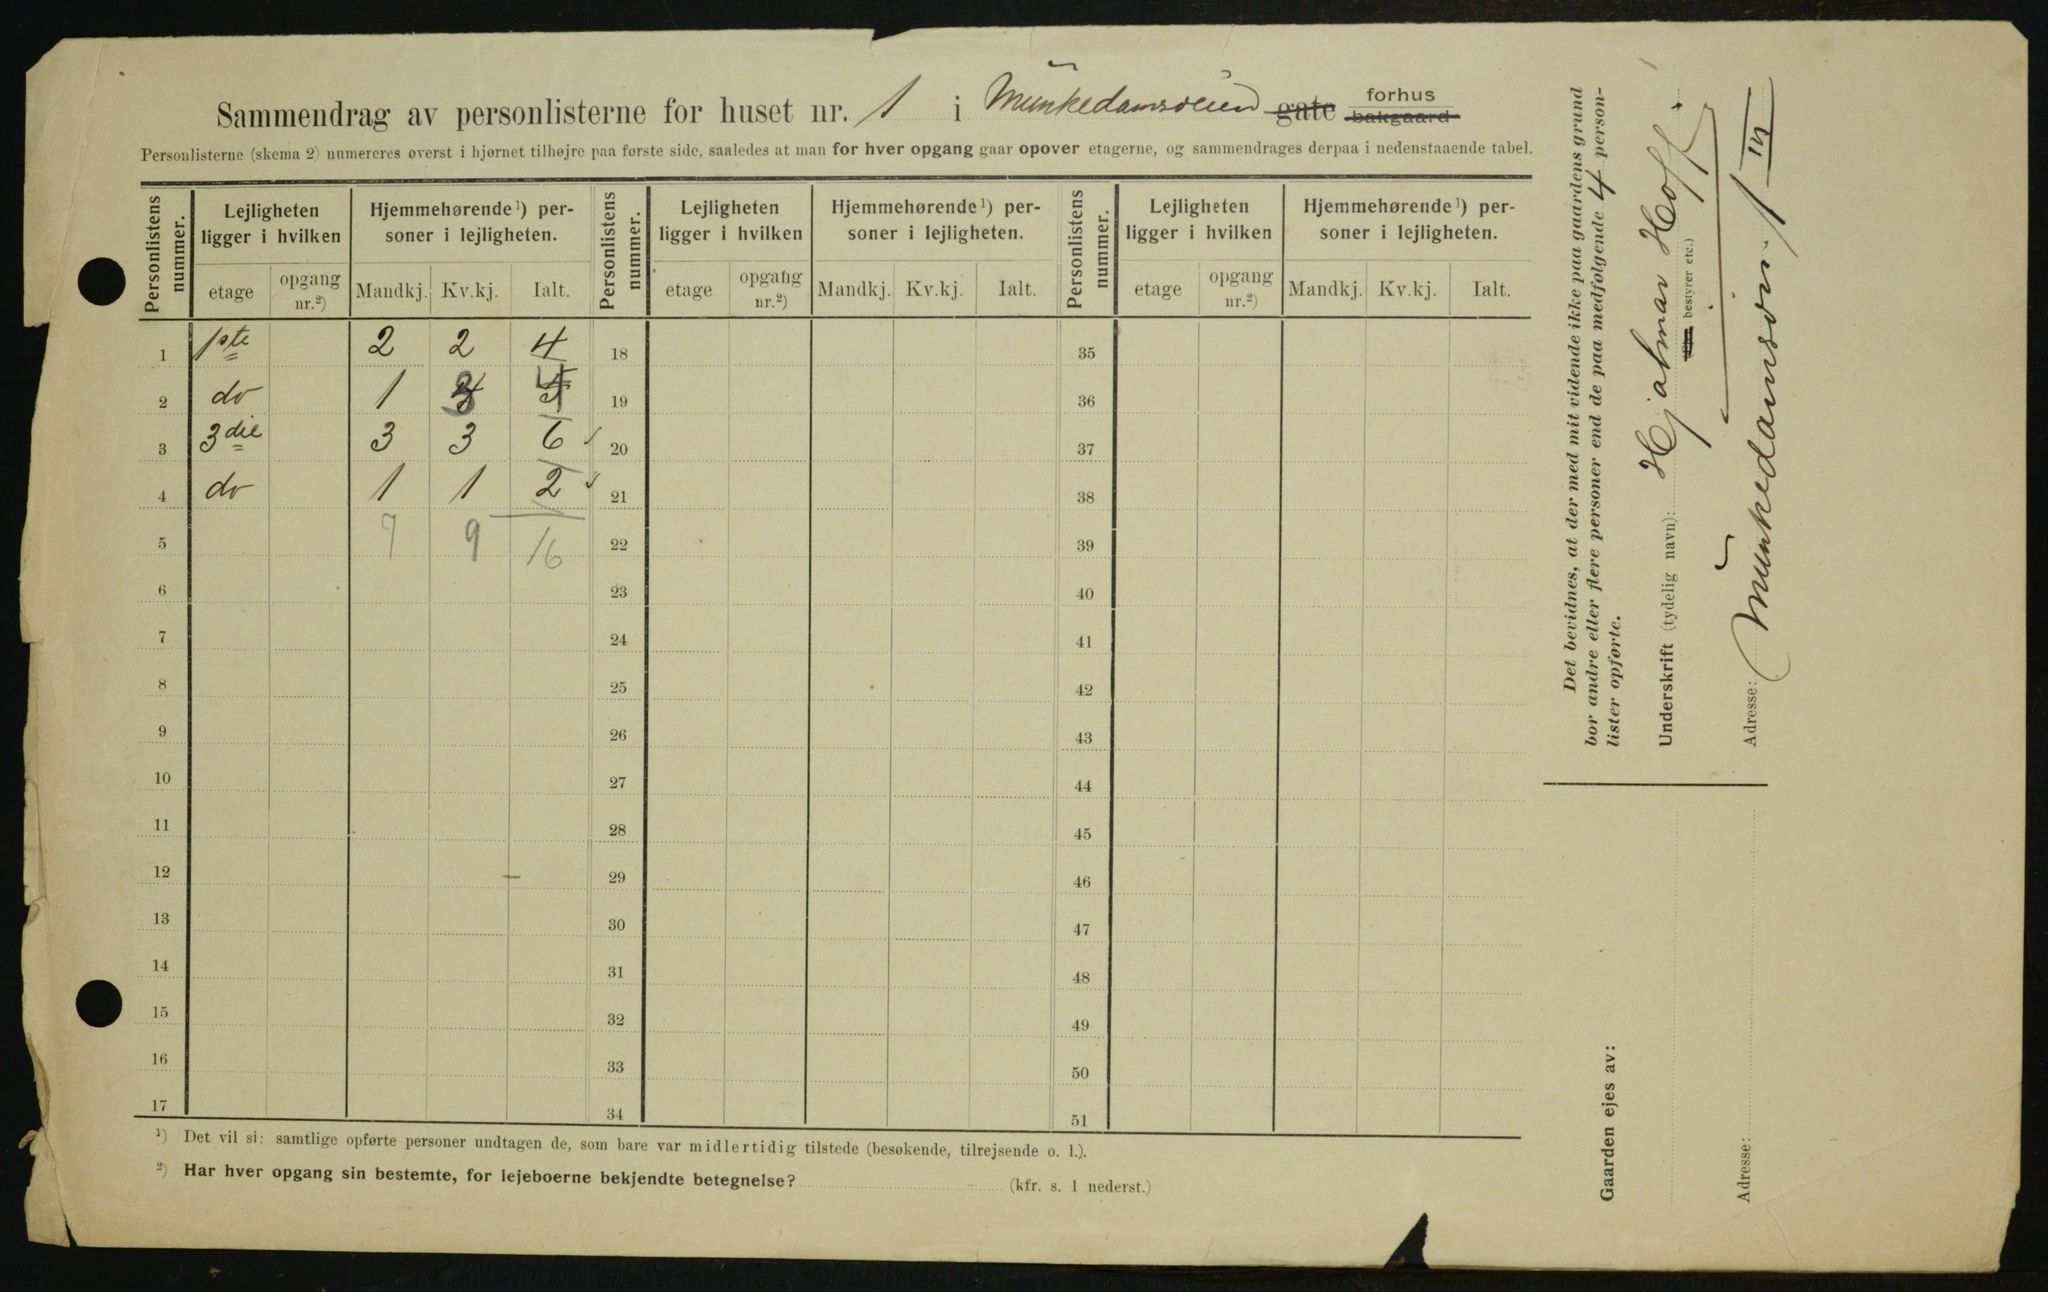 Sammendrag av personlisterne for huset nr. 1 i Munkedamsveien gate forhus bakgaard
Personlisterne (skema 2) numereres øverst i hjørnet tilhøjre paa første side, saaledes at man for hver opgang gaar opover etagerne, og sammendrages derpaa i nedenstaaende tabel.
Personlistens nummer. Lejligheten ligger i hvilken Hjemmehørende¹) personer i lejligheten. Personlistens nummer. Lejligheten ligger i hvilken Hjemmehørende¹) personer i lejligheten. Personlistens nummer. Lejligheten ligger i hvilken Hjemmehørende¹) personer i lejligheten.
etage opgang nr.²) Mandkj. Kv.kj. Ialt. etage opgang nr.²) Mandkj. Kv.kj. Ialt. etage opgang nr.²) Mandkj. Kv.kj. Ialt.
1 1ste 2 2 4 18 35
2 do 1 3 4 19 36
3 3die 3 3 6 20 37
4 do 1 1 2 21 38
5 7 9 16 22 39
6 23 40
7 24 41
8 25 42
9 26 43
10 27 44
11 28 45
12 29 46
13 30 47
14 31 48
15 32 49
16 33 50
17 34 51
¹) Det vil si: samtlige opførte personer undtagen de, som bare var midlertidig tilstede (besøkende, tilrejsende o. l.).
²) Har hver opgang sin bestemte, for lejeboerne bekjendte betegnelse? (kfr. s. 1 nederst.)
Det bevidnes, at der med mit vidende ikke paa gaardens grund
bor andre eller flere personer end de paa medfølgende 4 person-
lister opførte.
Underskrift (tydelig navn): Hjalmar Hoff
bestyrer etc.)
Adresse: Munkedamsvn. 1 III
Gaarden ejes av:
Adresse: